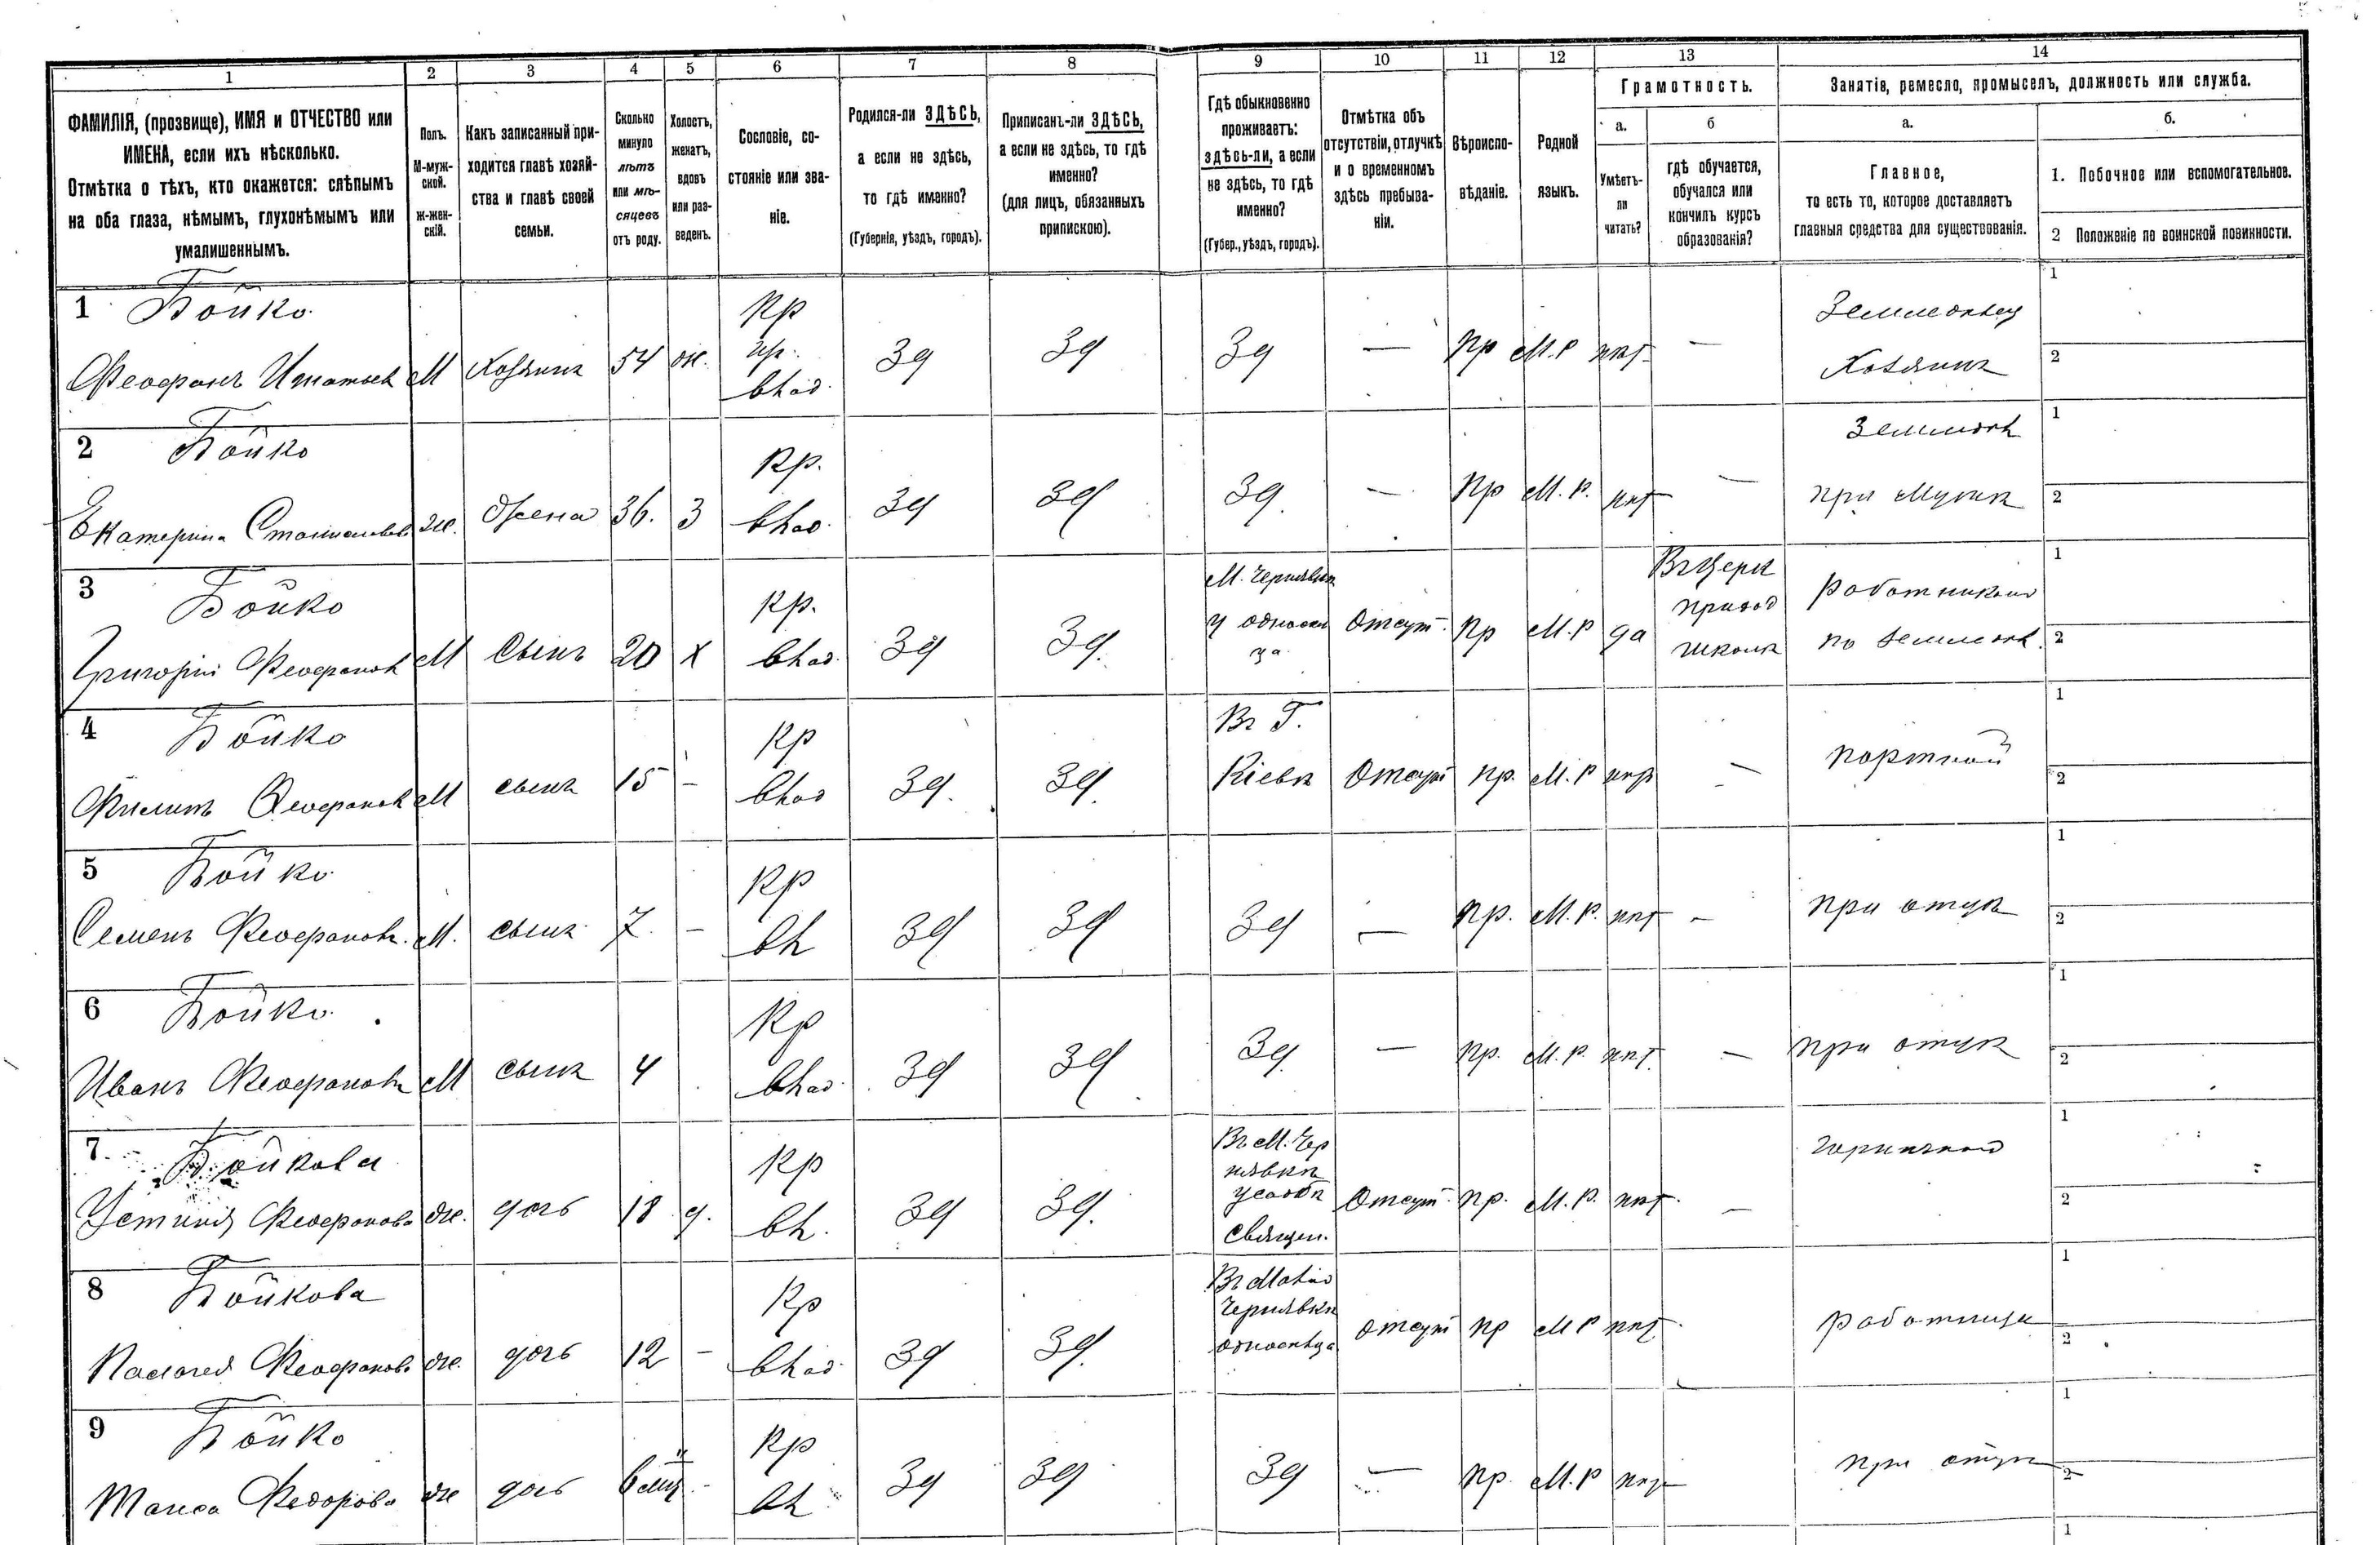 1 2 3 4 5 6 7 8 9 10 11 12 13 14
ФАМИЛІЯ, (прозвище), ИМЯ и ОТЧЕСТВО или
ИМЕНА, если ихъ нѣсколько.
Отмѣтка о тѣхъ, кто окажется: слѣпымъ
на оба глаза, нѣмымъ, глухонѣмымъ или
умалишеннымъ.
Полъ.
М-муж-
ской.
Ж-жен-
скій.
Какъ записанный при-
ходится главѣ хозяй-
ства и главѣ своей
семьи.
Сколько
минуло
лѣтъ
или мѣ-
сяцевъ
отъ роду.
Холостъ,
женатъ,
вдовъ
или раз-
веденъ.
Сословіе, со-
стояніе или зва-
ніе.
Родился-ли ЗДѢСЬ,
а если не здѣсь,
то гдѣ именно?
(Губернія, уѣздъ, городъ).
Приписанъ-ли ЗДѢСЬ,
а если не здѣсь, то гдѣ
именно?
(для лицъ, обязанныхъ
припискою).
Гдѣ обыкновенно
проживаетъ:
здѣсь-ли, а если
не здѣсь, то гдѣ
именно?
(Губер., уѣздъ, городъ).
Отмѣтка объ
отсутствіи, отлучкѣ
и о временномъ
здѣсь пребыва-
ніи.
Вѣроиспо-
вѣданіе.
Родной
языкъ.
Грамотность.
а.
Умѣетъ-
ли
читать?
б
гдѣ обучается,
обучался или
кончилъ курсъ
образованія?
Занятія, ремесло, промыселъ, должность или служба.
а.
Главное,
то есть то, которое доставляетъ
главныя средства для существованія.
б.
1. Побочное или вспомогательное.
2 Положеніе по воинской повинности.
1 Бойко
Феофанъ Игнатьев М Хозяинъ 54 ж. Кр
влад.
Зд Зд Зд — Пр М.Р нѣт —
Земледѣлец
Хозяинъ
1
2
2 Бойко
Екатерина ж. Жена 36. З Кр.
влад.
Зд Зд Зд. — Пр М.Р. нѣт —
Земледѣл
при мужѣ
1
2
3 Бойко
Григорій Феофанов М Сынъ 20 Х Кр.
влад.
Зд Зд.
М. Чернявкѣ
у
Отсут. Пр М.Р да
Въ Церк
приход
школѣ
Работникомъ
по земледѣл.
1
2
4 Бойко
Филипъ Феофанов М сынъ 15 — Кр
влад
Зд. Зд.
Въ Г.
Кіевѣ
Отсут пр. М.Р нѣт —
портной
1
2
5 Бойко
Семенъ Феофановъ. М. сынъ 7. — Кр
вл
Зд Зд Зд — Пр. М.Р. нѣт —
при отцѣ
1
2
6 Бойко
Иванъ Феофановъ М сынъ 4 Кр
влад.
Зд Зд Зд. — Пр. М.Р. нѣт. —
при отцѣ
1
2
7. Бойкова
Устинія Феофанова ж. дочь 18 д. Кр
вл.
Зд Зд.
Въ М. Чер
нявкѣ
Священ.
Отсут. пр. М.Р. нѣт. —
горничною
1
2
8 Бойкова
Пелагея Феофанов. ж. дочь 12 — Кр
влад.
Зд Зд.
Чернявкѣ
отсут пр М Р нѣт.
работница
1
2
9 Бойко
Федорова ж дочь 6 мц — Кр
вл
Зд Зд Зд — Пр. М.Р нѣт
при отцѣ
1
2
1